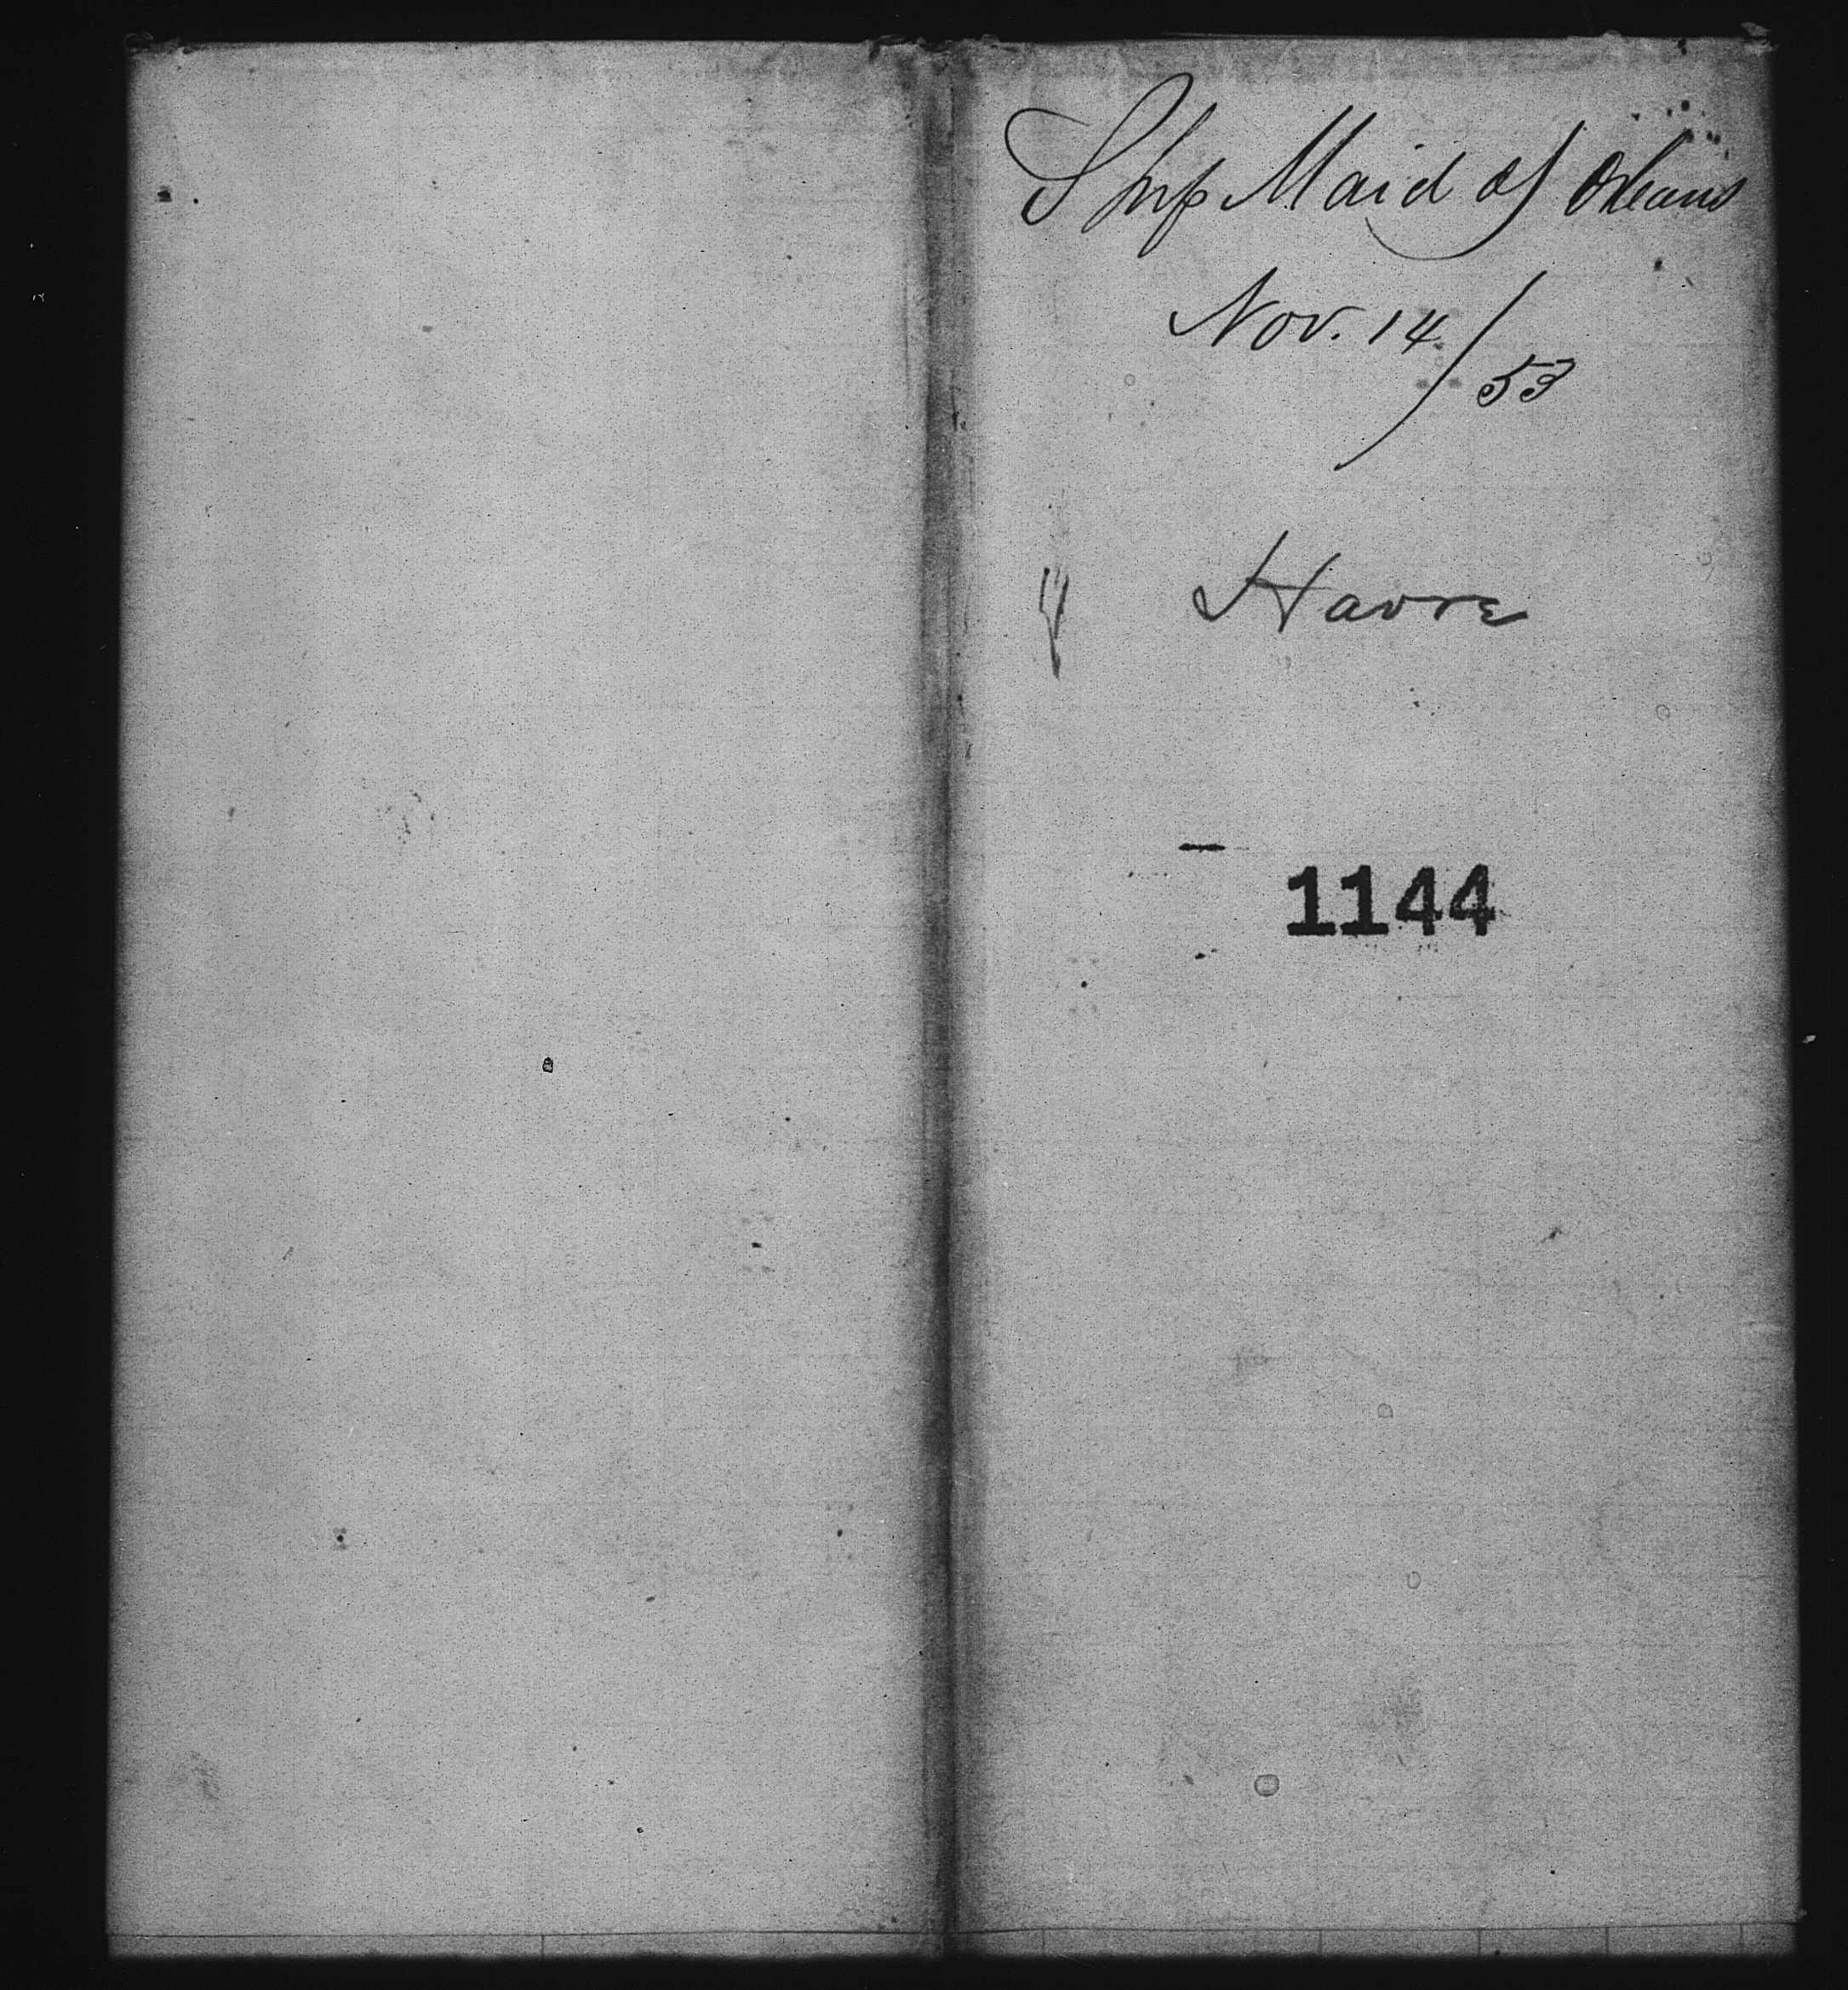 Ship Maid of Orleans
Nov. 14/53
Havre
1144